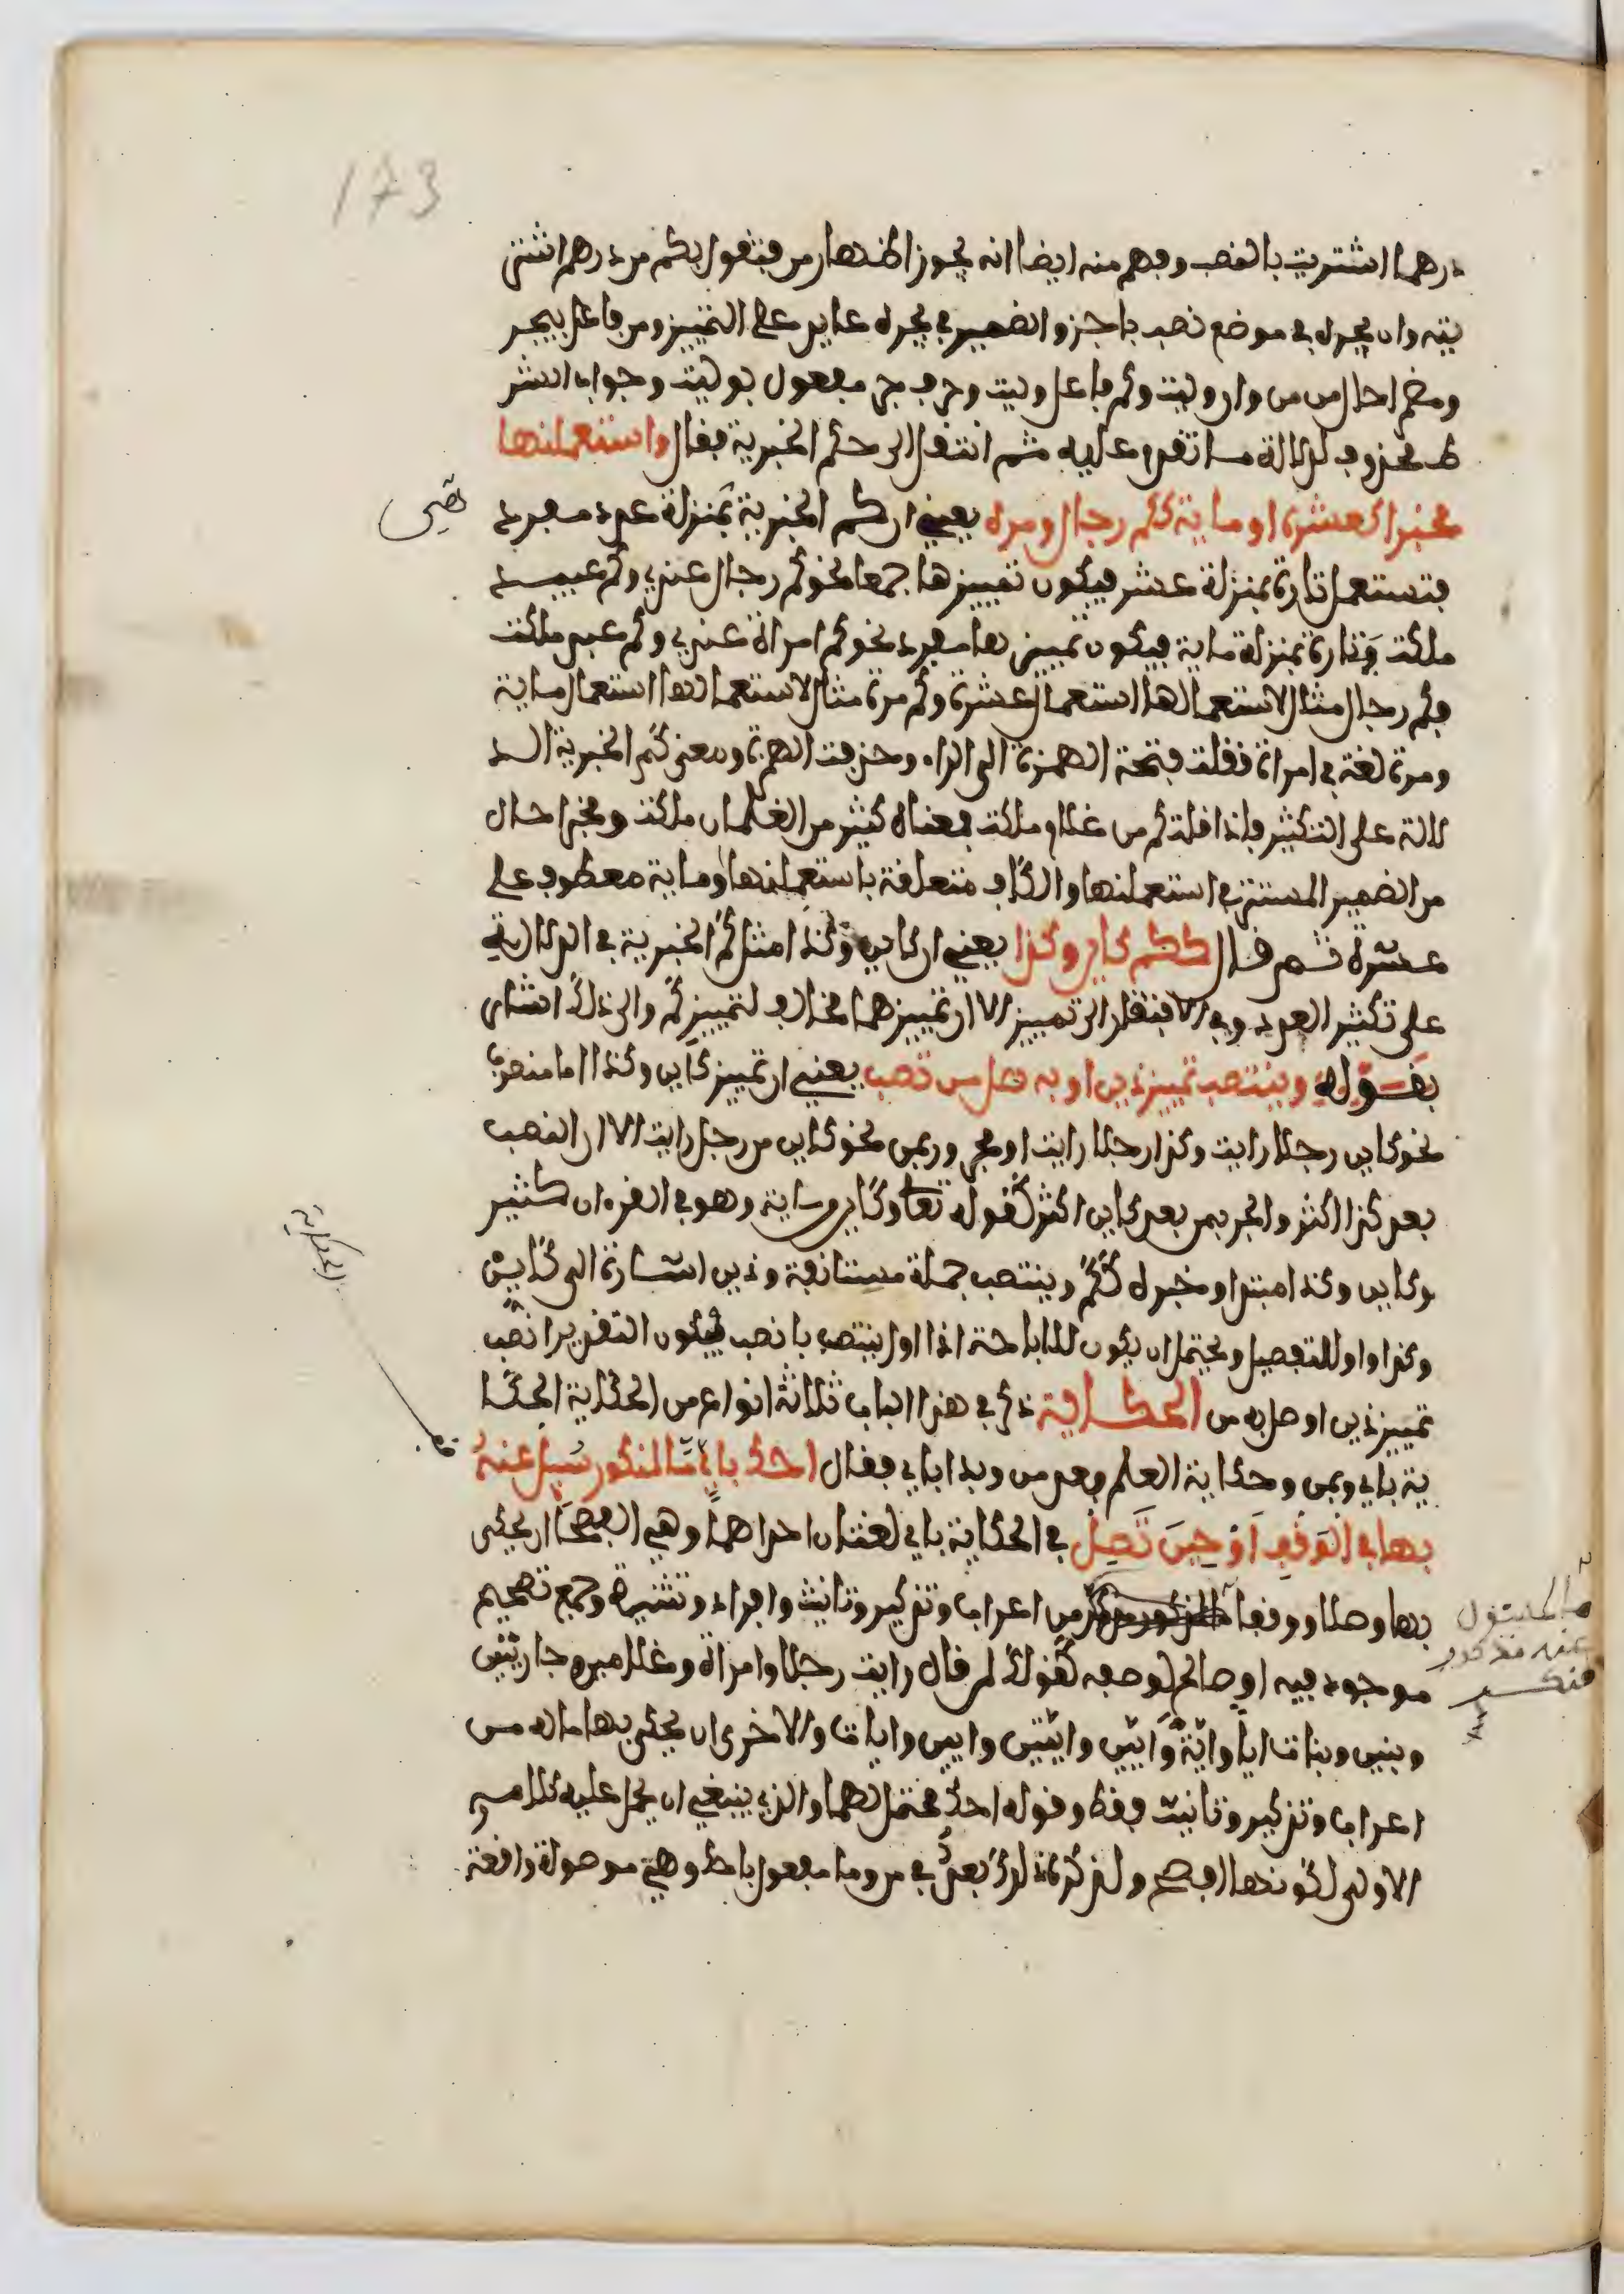 173
درهما اشتريت بالنصب وفهم منه ايضا انه يجوز اظهار من فتقول بكم من درهم اشتر
يته وان يجره في موضع نصب باجز والضمير في يجره عايد على التمييز ومن فاعل بيجر
ومضمرا حال من من وان وليت وكم فاعل وليت وحرف جر مفعول بوليت وجواب الشر
ط محذوف لدلالة ما تقدم عليه ثم انتقل الى حكم الخبرية فقال واستعملنها
مخبرا كعشرة او ماية ككم رجال او مره يعني ان كم الخبرية بمنزلة عدد مفرد
فتستعمل تارة بمنزلة عشر فيكون تمييزها جمعا نحو كم رجال عندي وكم عبيد
ملكت وتارة بمنزلة ماية فيكون تمييزها مفرد نحو كم امراة عندي وكم عبد ملكت
فكم رجال مثال لاستعمالها استعمال عشرة وكم مرة مثال لاستعمالها استعمال ماية
ومرة لغة في امراة نقلت فتحة الهمزة الى الراء وحذفت الهمزة ومعنى كم الخبرية الد
لالة على التكثير فاذا قلت كم من غلام ملكت فمعناه كثير من الغلمان ملكت ومخبرا حال
من الضمير المستتر في استعملنها والكاف متعلقة باستعملنها وماية معطوف على
عشرة ثم قال ككم كاين وكذا يعني ان كاين وكذا مثل كم الخبرية في الدلالة
على تكثير العدد وفي الافتقار الى تمييز الا ان تمييزهما مخالف لتمييز كم والى ذلك اشار
بقوله وينتصب تمييز ذين او به صل من تصب يعني ان تمييز كاين وكذا اما منصوب
نحو كاين رجلا رايت وكذا رجلا رايت او مجرور بمن نحو كاين من رجل رايت الا ان النصب
بعد كذا اكثر والجر بمن بعد كاين اكثر كقوله تعا وكاين من اية وهو في القرءان كثير
وكاين وكذا مبتدا وخبره ككم وينتصب جملة مستانفة وذين اشارة الى كاين
وكذا واو للتفصيل ويحتمل ان يكون للاباحة اذا اول ينتصب بانصب فيكون التقدير انصب
تمييز ذين او صل به من الحكاية ذكر في هذا الباب ثلاثة انواع من الحكاية الحكا
ية باي وبمن وحكاية العلم بعد من وبدا باي فقال احك باي ما لمنكور سيل عنه
بها في الوقف او حين تصل في الحكاية باي لغتان احداهما وهي الفصحى ان يحكى
بها وصلا ووقفا من اعراب وتذكير وتانيث وافراد وتثنية وجمع تصحيح
موجود فيه او صالح لوصفه كقولك لمن قال رايت رجلا وامراة وغلامين وجاريتين
وبنين وبنات ايا واية وايين وايتين وايين وايات والاخرى ان يحكى بها ماله من
اعراب وتذكير وتانيث فقط وقوله احك محتمل لهما والذي ينبغي ان يحمل عليه كلامه
الاولى لكونها افصح ولذكره ذلك بعد في من وما مفعول باحك وهي موصولة واقعة
الحكاية
ما للمسئول
عنه مذكور
منكر